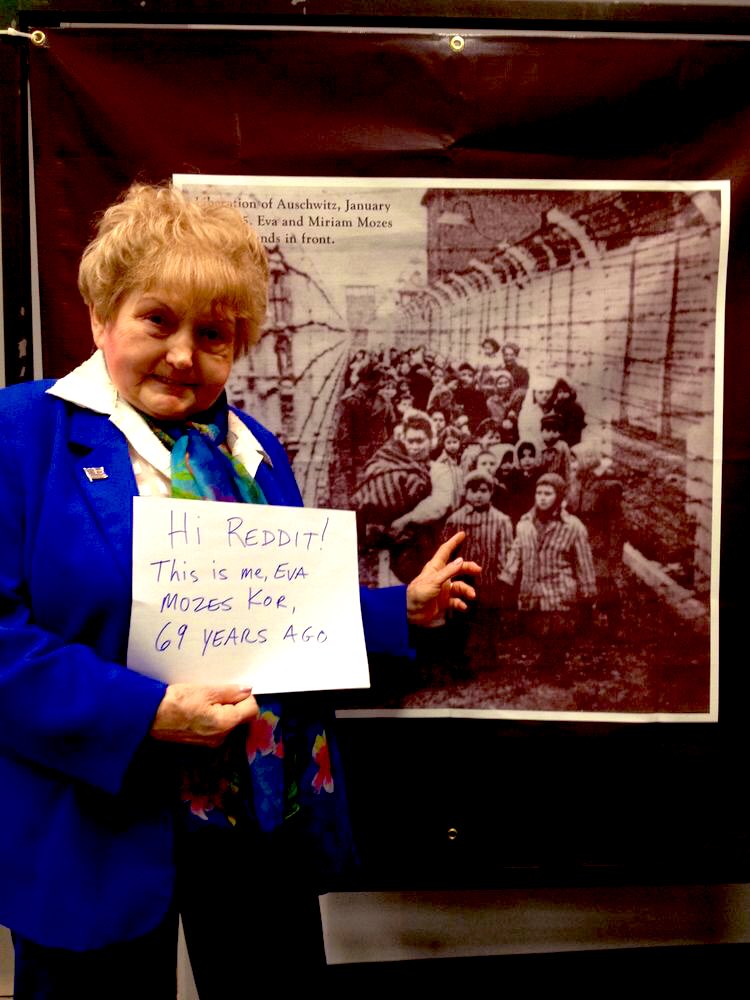 Liberation of Auschwitz, January
5. Eva and Miriam Mozes
in front.
Hi REDDIT!
This is me, EVA
MOZES KOR,
69 YEARS AGO